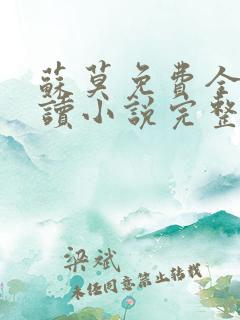 蘇莫免費全
讀小說完整
梁斌
未任同意禁止转载